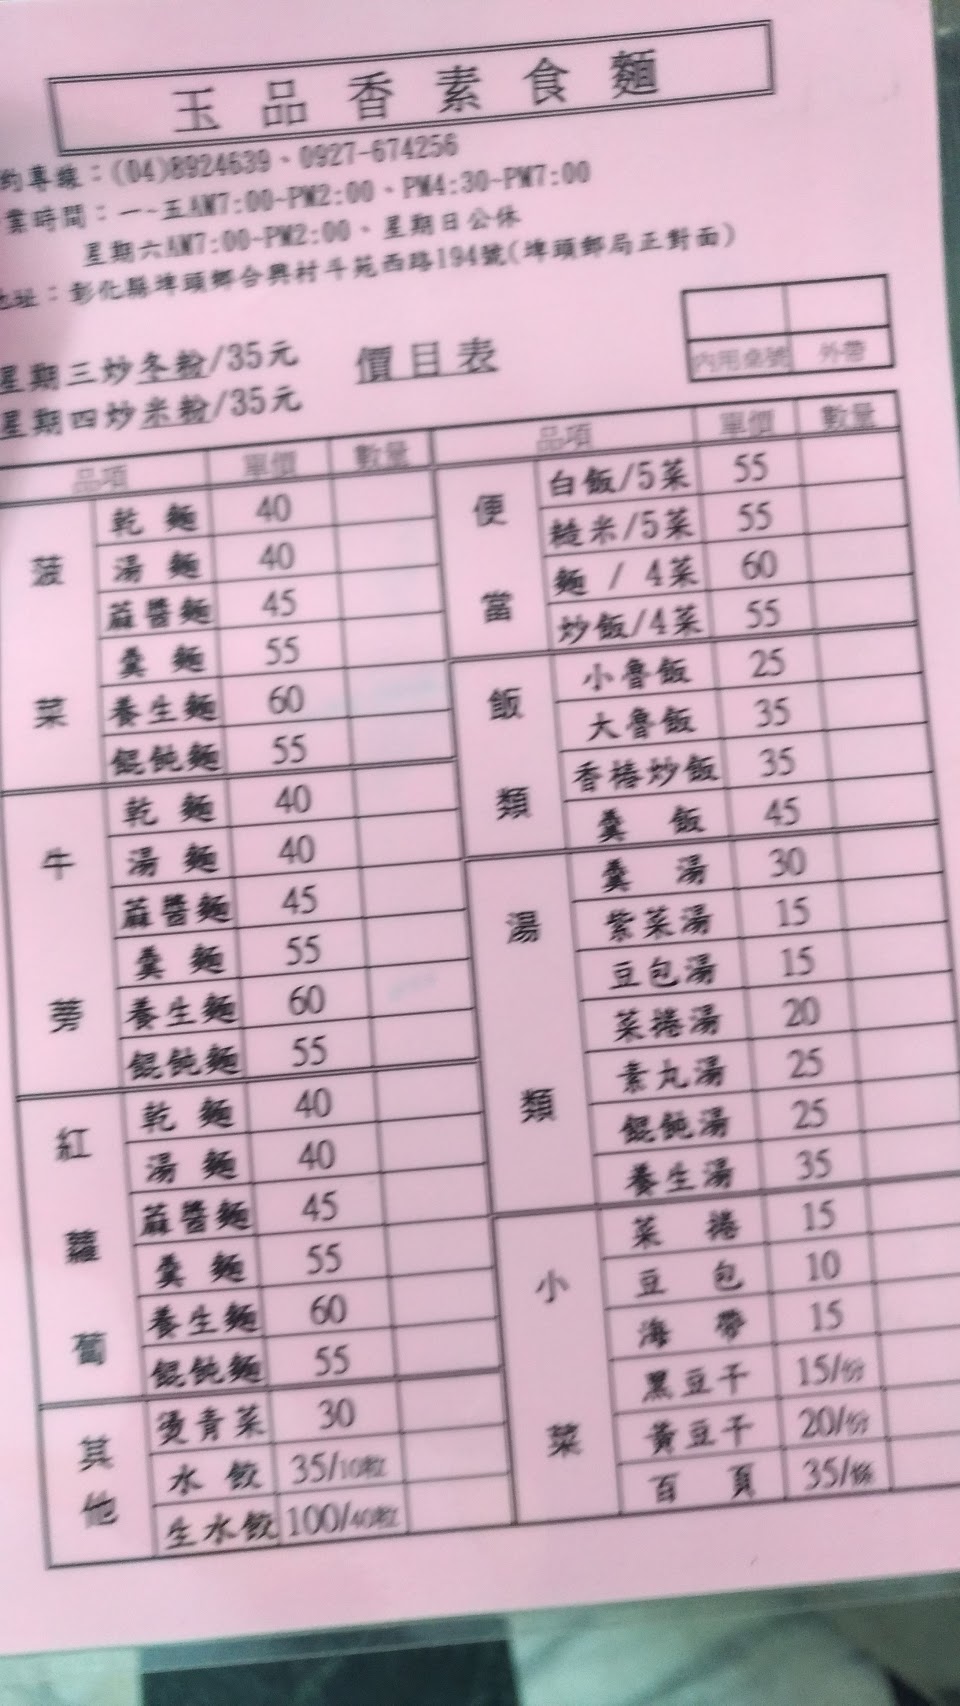 玉品香素食麵
約專線：(04)8924639、0927-674256
業時間：一~五AM7:00~PM2:00、PM4:30~PM7:00
星期六AM7:00~PM2:00、星期日公休
地址：彰化縣埤頭鄉合興村斗苑西路194號(埤頭郵局正對面)
內用桌號 外帶
星期三炒冬粉/35元
星期四炒米粉/35元
價目表
品項 單價 數量
菠菜
乾麵 40
湯麵 40
蔴醬麵 45
羹麵 55
養生麵 60
餛飩麵 55
牛蒡
乾麵 40
湯麵 40
蔴醬麵 45
羹麵 55
養生麵 60
餛飩麵 55
紅蘿蔔
乾麵 40
湯麵 40
蔴醬麵 45
羹麵 55
養生麵 60
餛飩麵 55
其他
燙青菜 30
水餃 35/10粒
生水餃 100/40粒
品項 單價 數量
便當
白飯/5菜 55
糙米/5菜 55
麵/4菜 60
炒飯/4菜 55
飯類
小魯飯 25
大魯飯 35
香椿炒飯 35
羹飯 45
湯類
羹湯 30
紫菜湯 15
豆包湯 15
菜捲湯 20
素丸湯 25
餛飩湯 25
養生湯 35
小菜
菜捲 15
豆包 10
海帶 15
黑豆干 15/份
黃豆干 20/份
百頁 35/條